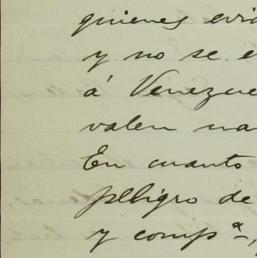 quienes evi
y no se e
á Venezue
valen na
En cuanto
peligro de
y compª,